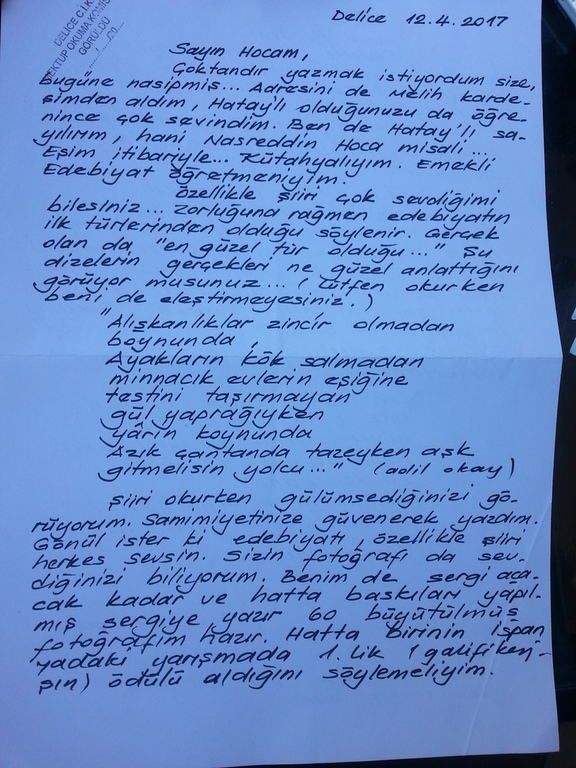 DELİCE C.İ.K
MEKTUP OKUMA KOMİS
GÖRÜLDÜ
Delice 12.4.2017
Sayın Hocam,
Çoktandır yazmak istiyordum size,
bugüne nasipmiş... Adresini de Melih karde-
şimden aldım, Hatay'lı olduğunuzu da öğre-
nince çok sevindim. Ben de Hatay'lı sa-
yılırım, hani Nasreddin Hoca misali...
Eşim itibariyle... Kütahyalıyım. Emekli
Edebiyat öğretmeniyim.
Özellikle şiiri çok sevdiğimi
bilesiniz... Zorluğuna rağmen edebiyatın
ilk türlerinden olduğu söylenir. Gerçek
olan da "en güzel tür olduğu..." Şu
dizelerin gerçekleri ne güzel anlattığını
görüyor musunuz... (Lütfen okurken
beni de eleştirmeyesiniz.)
"Alışkanlıklar zincir olmadan
boynunda,
Ayakların kök salmadan
minnacık evlerin eşiğine
testini taşırmayan
gül yaprağıyken
yârin koynunda
Azık çantanda tazeyken aşk
gitmelisin yolcu..." (adil okay)
Şiiri okurken gülümsediğinizi gö-
rüyorum. Samimiyetinize güvenerek yazdım.
Gönül ister ki edebiyatı, özellikle şiiri
herkes sevsin. Sizin fotoğrafı da sev-
diğinizi biliyorum. Benim de sergi aça-
cak kadar ve hatta baskıları yapıl-
mış sergiye hazır 60 büyütülmüş
fotoğrafım hazır. Hatta birinin İspan
yadaki yarışmada 1.lik
ödülü aldığını söylemeliyim.